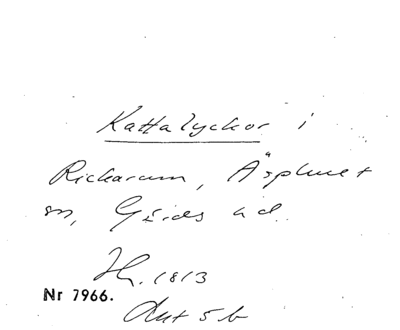 Kattalyckor i
Rickarum, Äsphult
sn, Gärds hd.
Hr. 1813
Nr 7966.
Akt 5 b